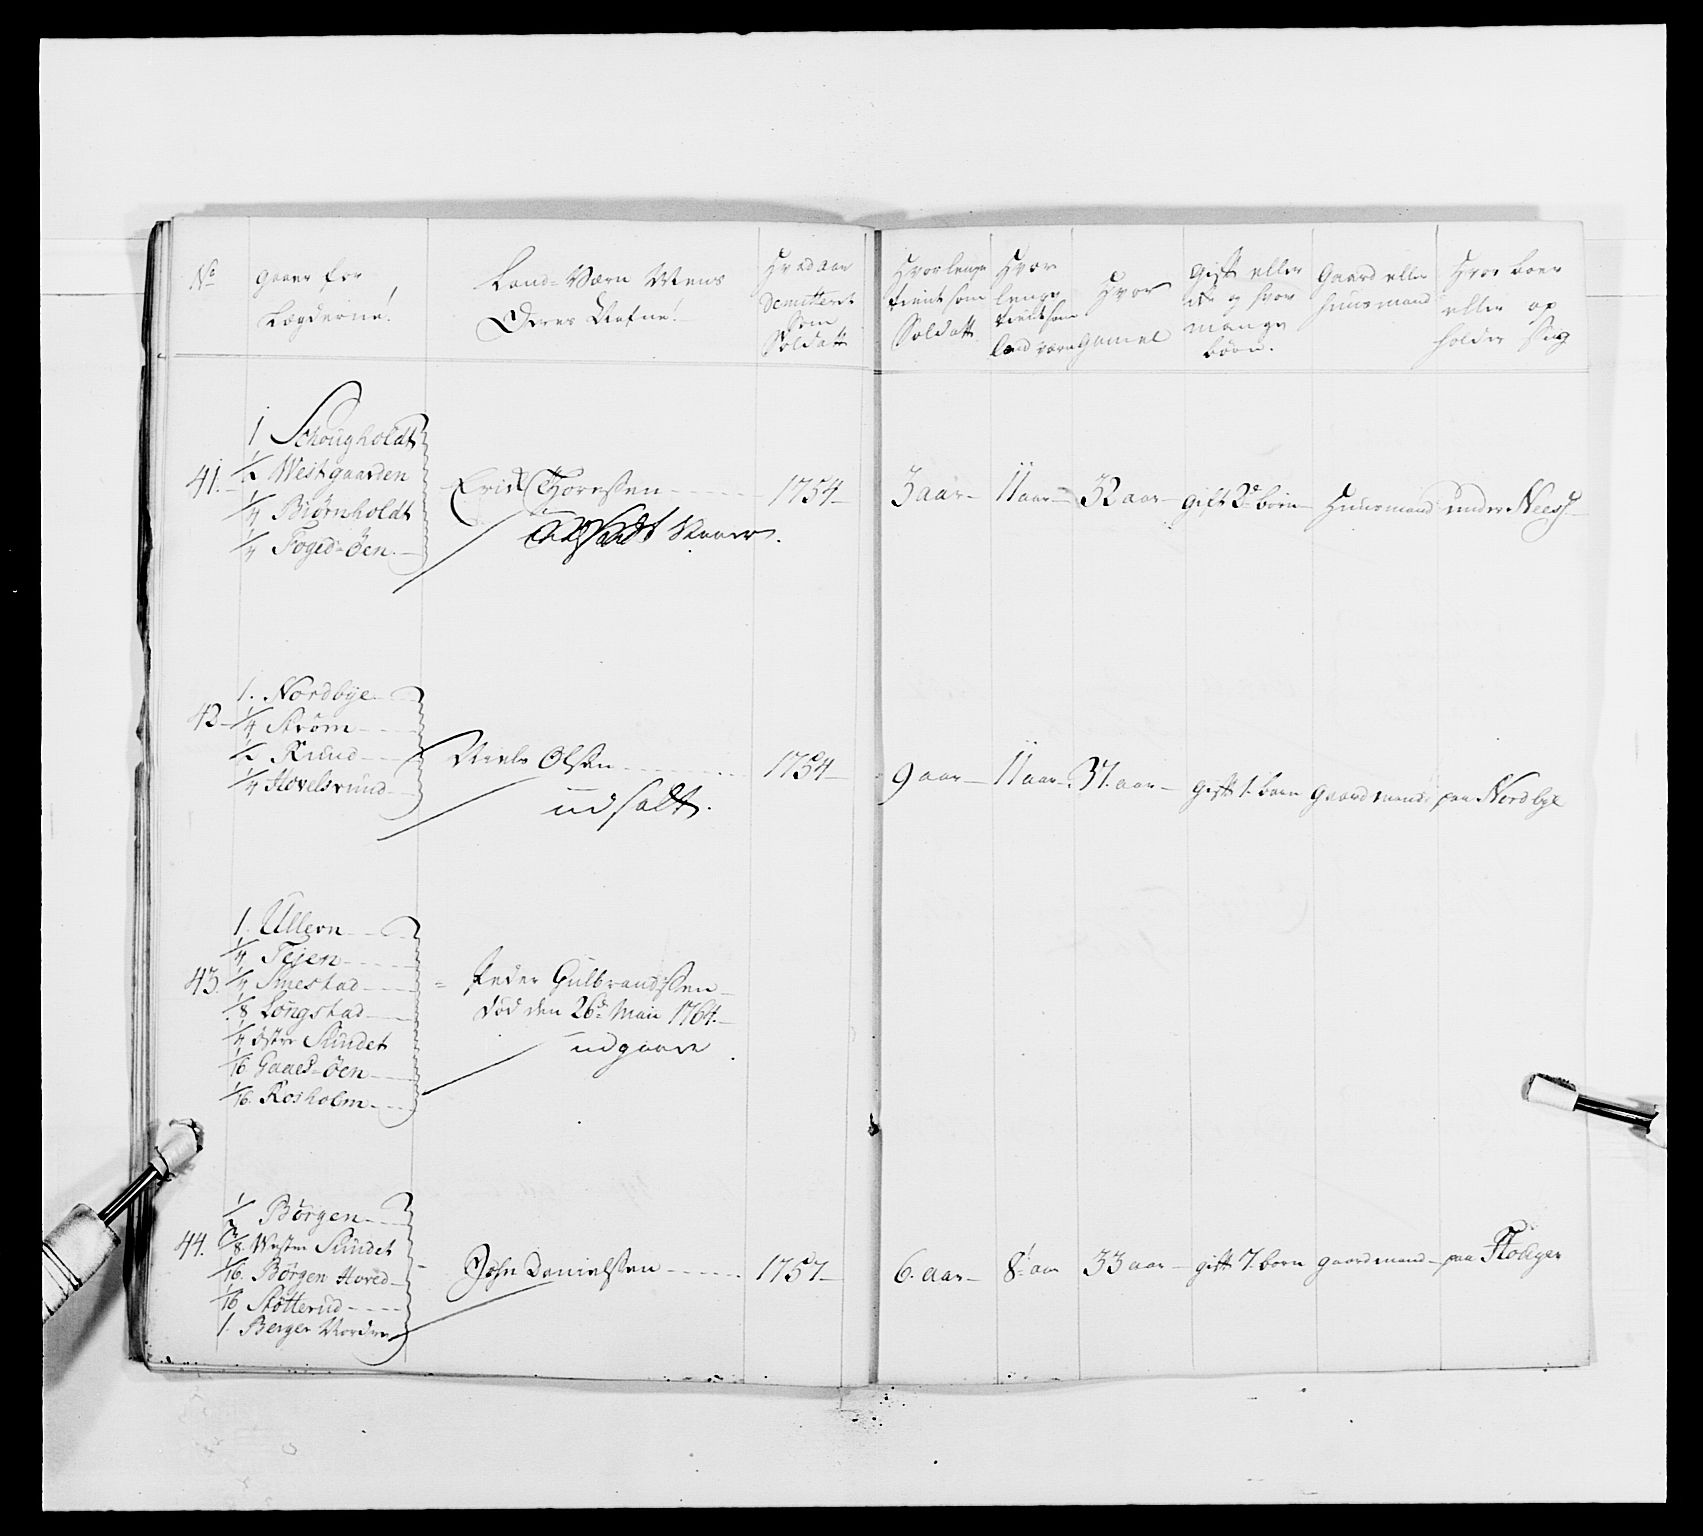 No
gaarer for
Lægderne!
Land-Værn Mens
Deres Nafne!
Hvad aar
Demitteret
som
Soldatt
Hvor lenge
tient som
Soldatt
Hvor
lenge
tient som
land værn
Hvor
Gamel
Gift eller
ik og hvor
mange
børn.
Gaard eller
huusmand
Hvor boer
eller op
holder sig
1 Schougholdt
41. 1/2 Westgaarden
1/4 Biørnholdt
1/4 Foged-Öen
Erick Thoressen 1754 3 aar 11 aar 32 aar gift 2de børn Huusmand under Nees
1. Nordbye
42 1/4 Strøm
1/2 Ruud
1/4 Hovelsruud
Niels Olsen 1754 9 aar 11 aar 37. aar gift 1. barn gaardmand paa Nordbye
udsatt.
1. Ullern
1/4 Fejen
43. 1/4 Smestad
1/8 Longstad
1/4 Østre Sundet
1/16 Gaaes-Öen
1/16. Rosholm
Peder Gulbrandssen
død den 26de Maii 1764.
udgaaer
1/2 Børgen
44. 3/8. Westre Sundet
1/16. Børgen Hoved
1/16 Støtterud
1. Berger Nordre
John Danielssen 1757 6. aar 8 aar 33 aar gift 7 børn gaardmand paa Floeger